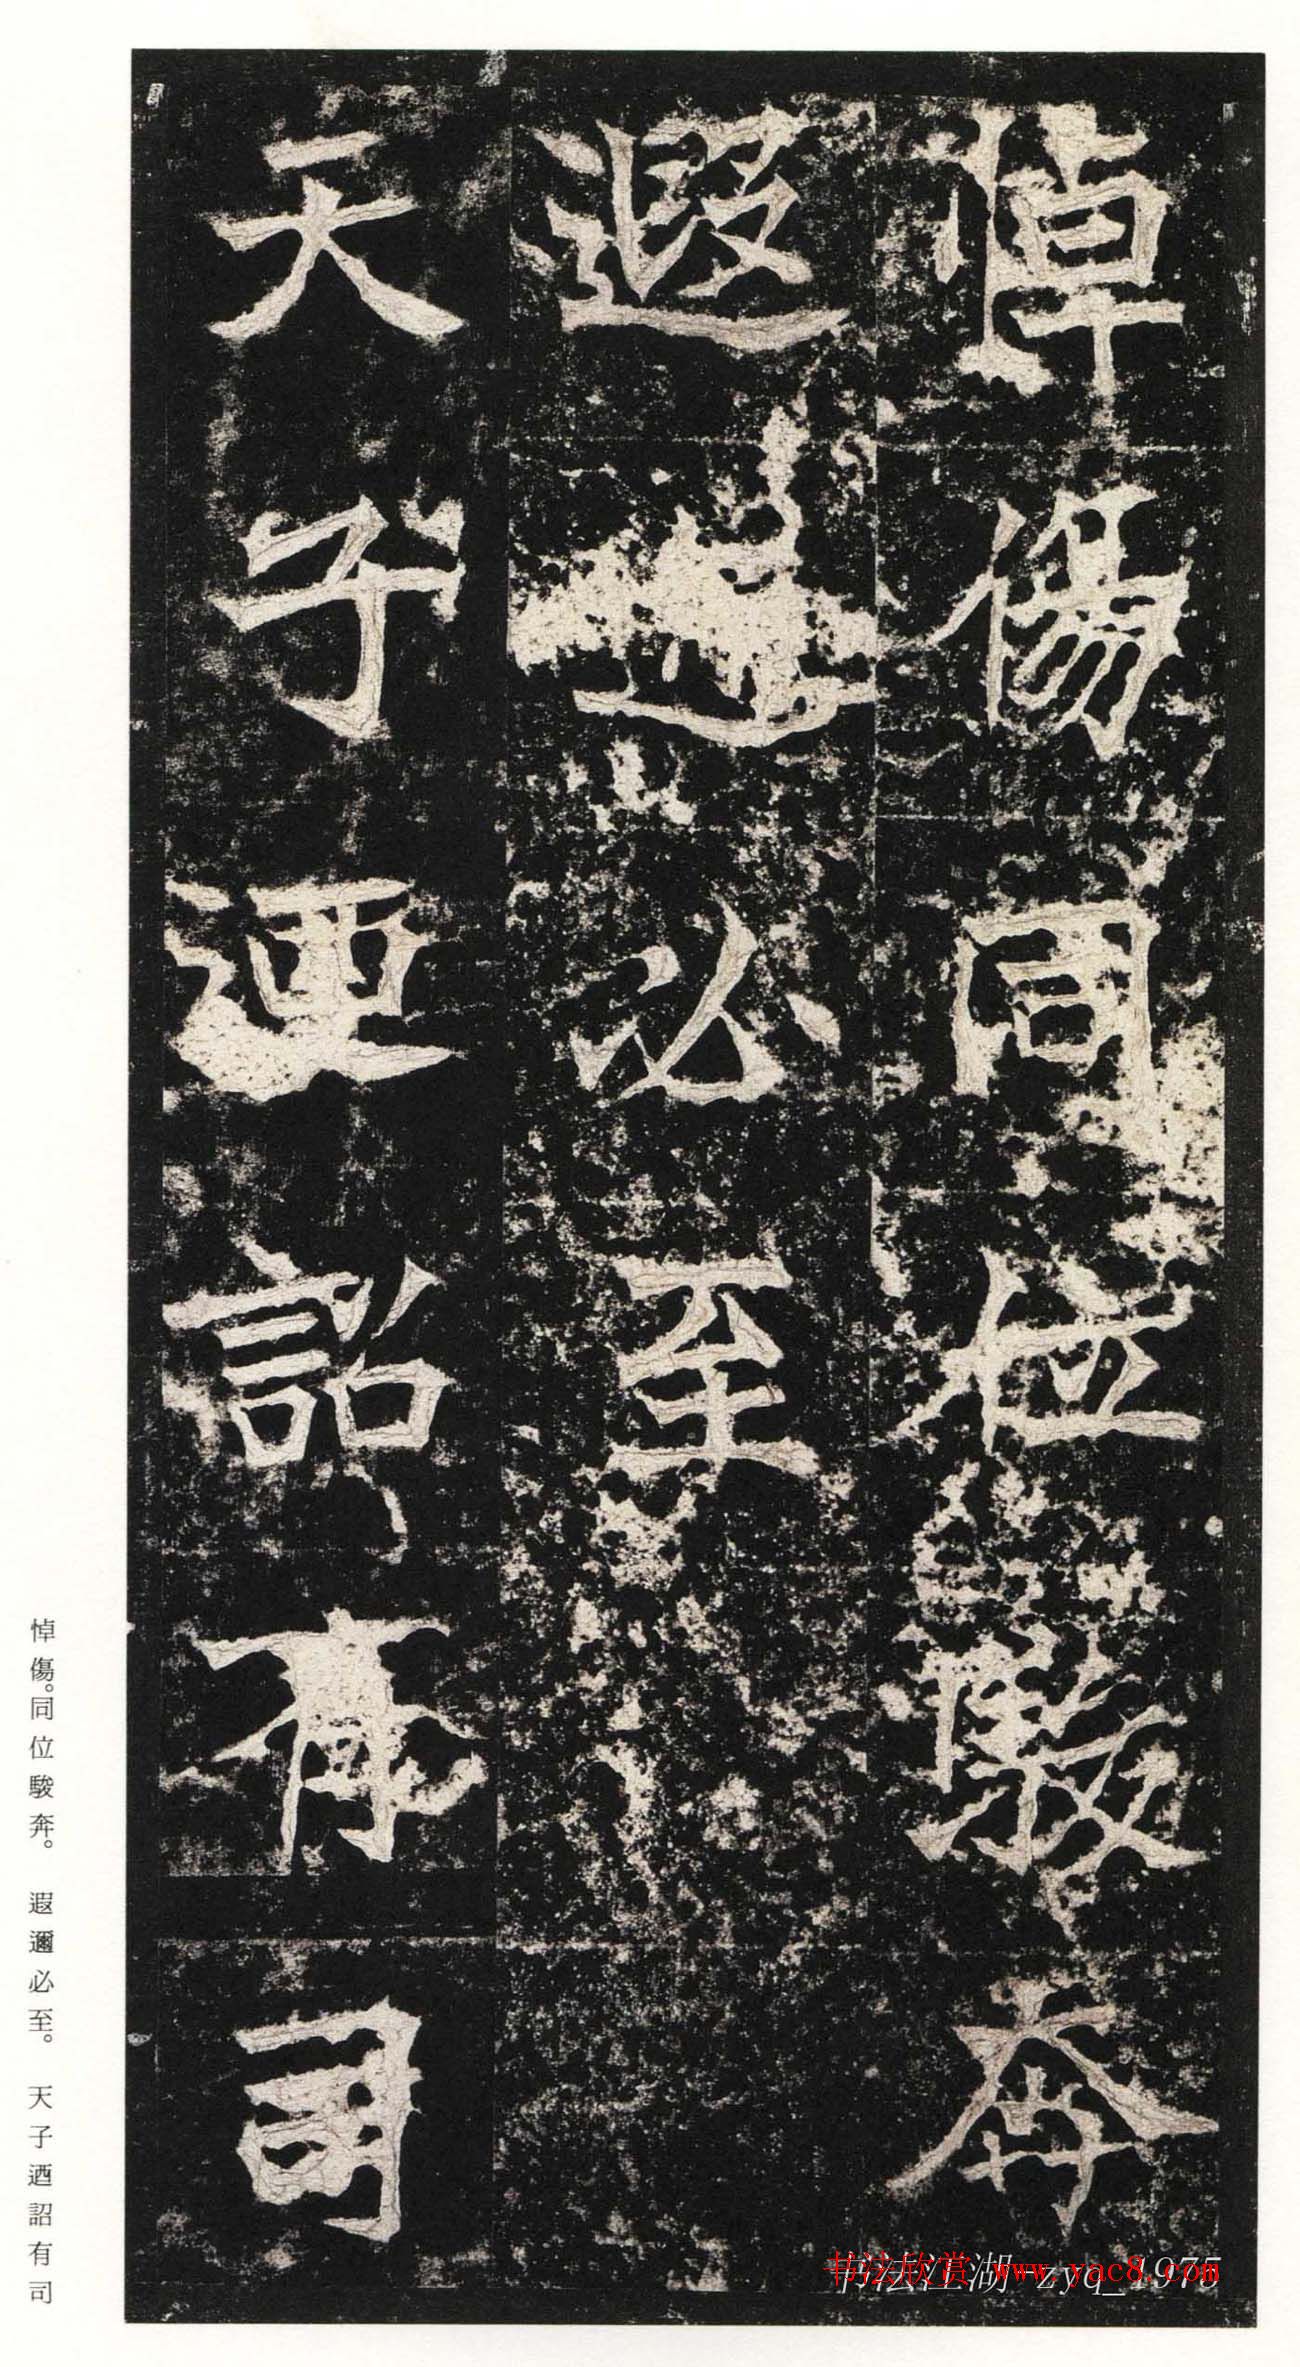 悼傷同位駿奔
遐邇必至
天子迺詔有司
悼傷。同位駿奔。遐邇必至。天子迺詔有司
书法欣赏 www.yac8.com
书法江湖-zyq_1975